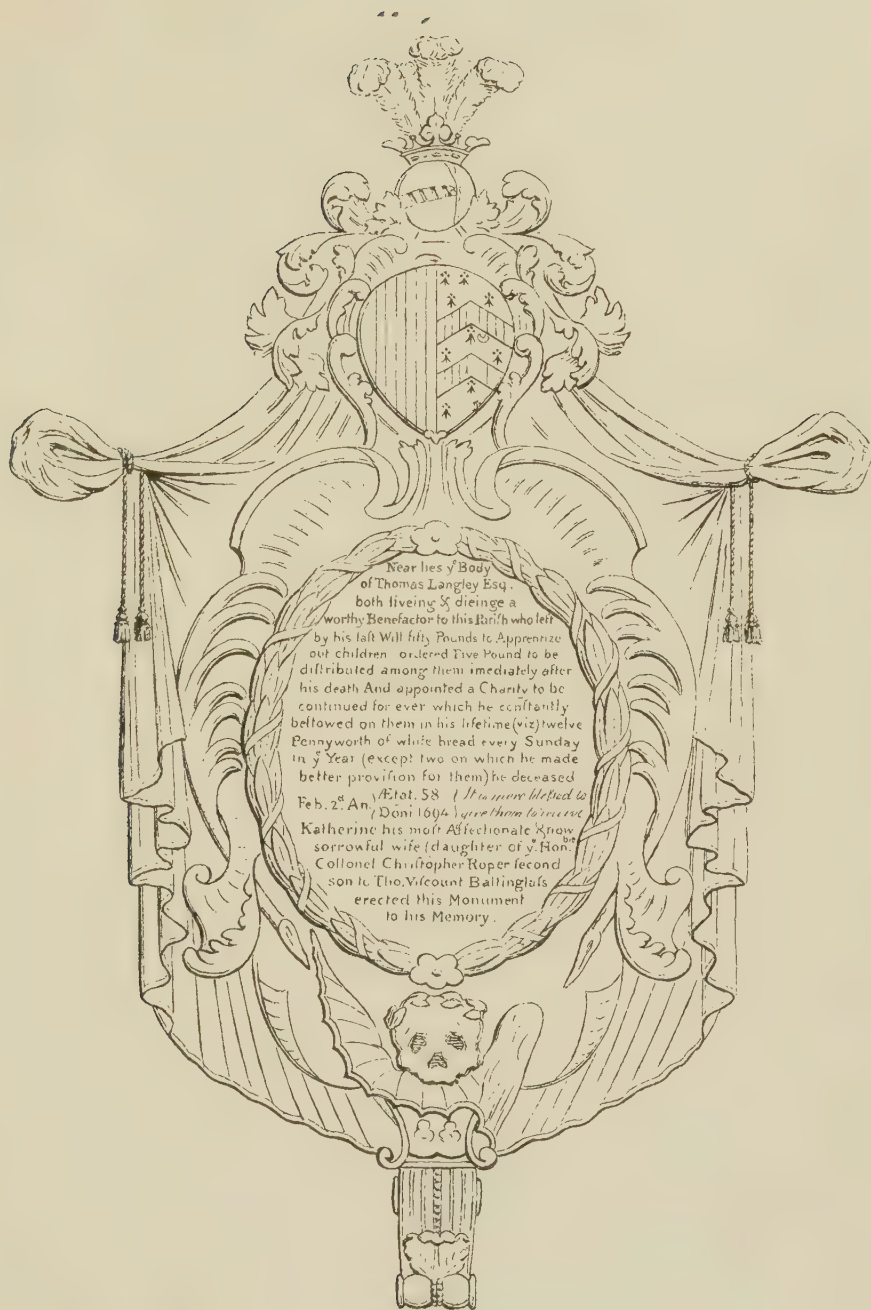 Near lies yᵉ Body
of Thomas Langley Esq.
both liveing & dieinge a
worthy Benefactor to this Parish who left
by his laſt Will fifty Pounds to Apprentize
out children ordered Five Pound to be
diſtributed among them imediately after
his death And appointed a Charity to be
continued for ever which he conſtantly
beſtowed on them in his lifetime (viz) twelve
Pennyworth of white bread every Sunday
in yᵉ Year (except two on which he made
better proviſion for them) he deceased
Feb. 2ᵈ. An. Ætat. 58 It is more bleſsed to
Dōni 1694 give them to receive
Katherine his moſt Affectionate & now
sorrowful wife (daughter of yᵉ. Honᵇˡᵉ
Collonel Chriſtopher Roper ſecond
son to Tho. Viſcount Baltinglaſs
erected this Monument
to his Memory.